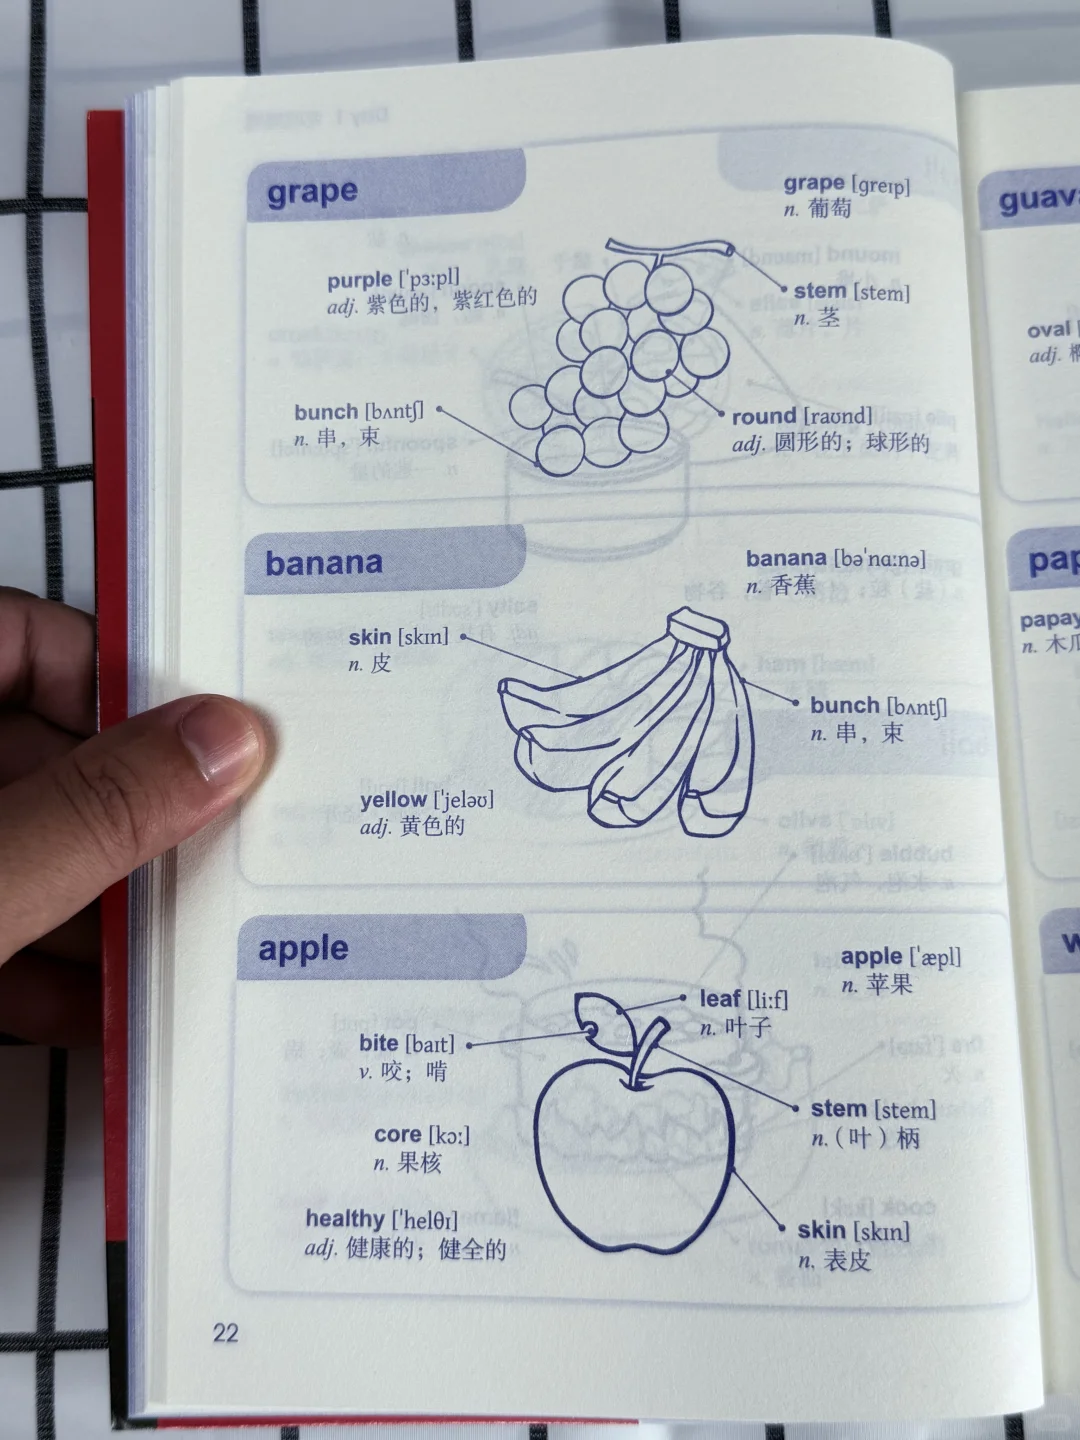 grape
grape [greɪp]
n. 葡萄
purple [ˈpɜ:pl]
adj. 紫色的，紫红色的
stem [stem]
n. 茎
bunch [bʌntʃ]
n. 串，束
round [raʊnd]
adj. 圆形的；球形的
banana
banana [bəˈnɑ:nə]
n. 香蕉
skin [skɪn]
n. 皮
bunch [bʌntʃ]
n. 串，束
yellow [ˈjeləʊ]
adj. 黄色的
apple
apple [ˈæpl]
n. 苹果
leaf [li:f]
n. 叶子
bite [baɪt]
v. 咬；啃
stem [stem]
n.（叶）柄
core [kɔ:]
n. 果核
healthy [ˈhelθɪ]
adj. 健康的；健全的
skin [skɪn]
n. 表皮
22
oval
adj.
n. 木瓜